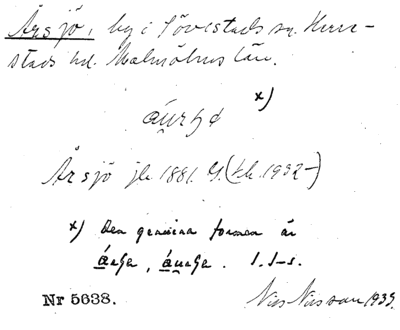 Årsjö, by i Sövestads sn. Herre-
stads hd. Malmöhus län.
x)
Årsjö jb. 1881. G. (kb. 1932-)
x) Den genuina formen är
I. I-s.
Nr 5638. Nils Nilsson 1939.